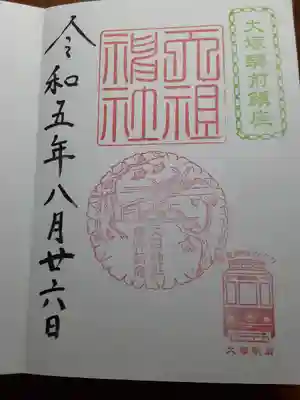 大塚駅前鎮座
天祖神社
令和五年八月廿六日
大塚駅前